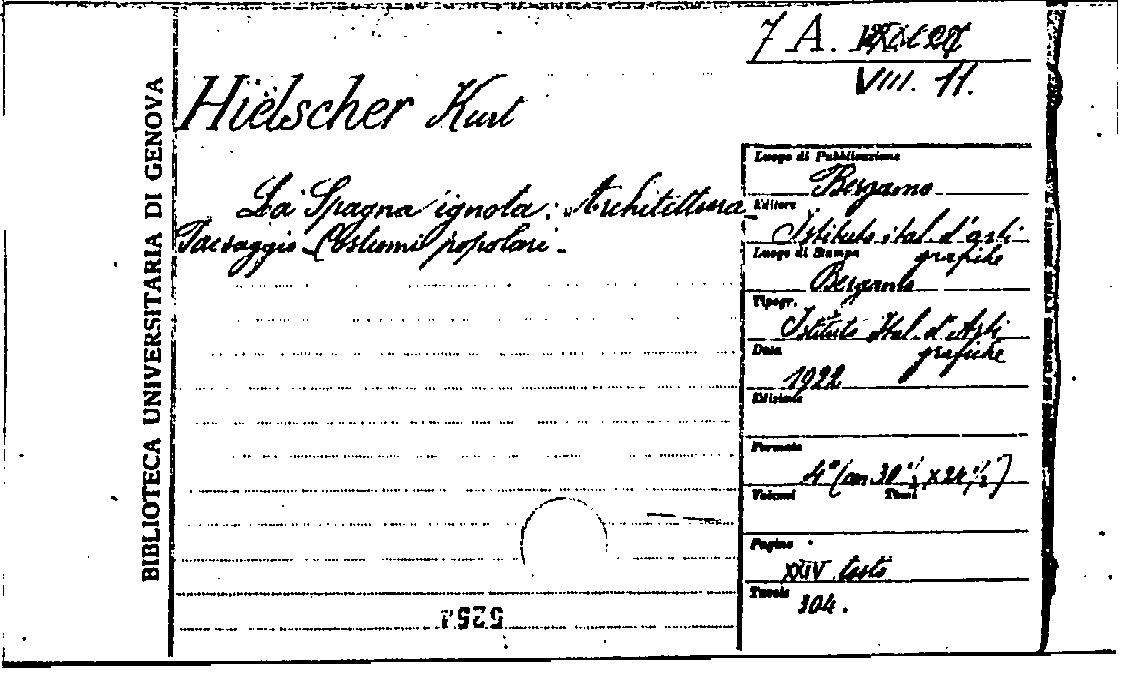 7 A.
VIII. 11.
BIBLIOTECA UNIVERSITARIA DI GENOVA
Hiëlscher Kurt
La Spagna ignota: Architettura
Paesaggio - Costumi popolari -
Luogo di Pubblicazione
Bergamo
Editore
Istituto ital. d'arti
grafiche
Luogo di Stampa
Bergamo
Tipogr.
Istituto Ital. d'Arti
grafiche
Data
1922
Edizione
Formato
4° (cm 30 1/2 x 24 1/2)
Volumi Tomi
Pagine
XXIV testo
Tavole
304.